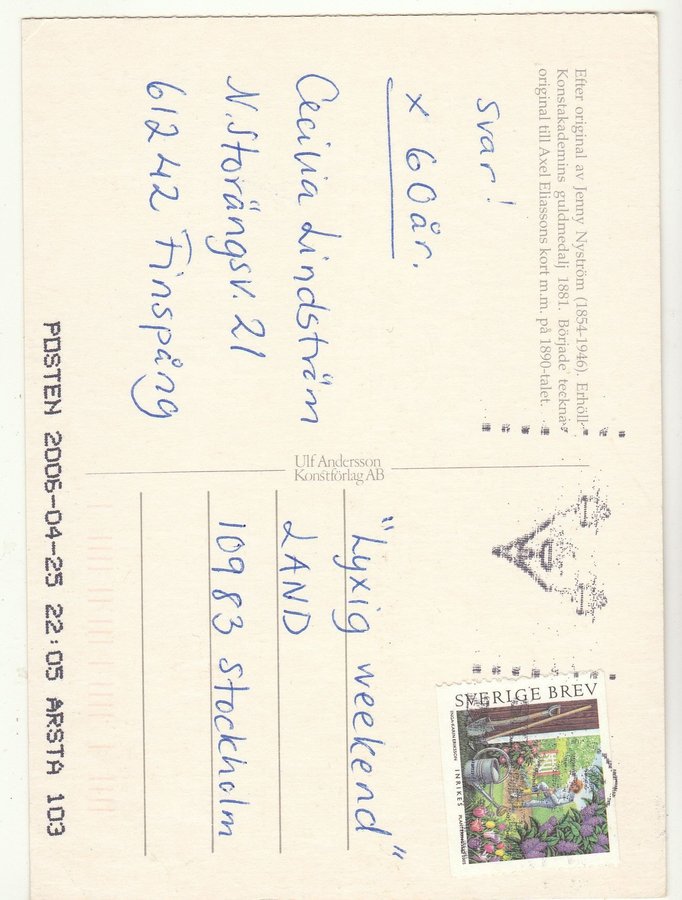 Efter original av Jenny Nyström (1854-1946). Erhöll
Konstakademins guldmedalj 1881. Började teckna
original till Axel Eliassons kort m.m. på 1890-talet.
Svar!
x 60 år.
Cecilia Lindström
N. Storängsv. 21
612 42 Finspång
Ulf Andersson
Konstförlag AB
"Lyxig weekend"
LAND
10983 Stockholm
SVERIGE BREV
INRIKES
POSTEN 2006-04-25 22:05 ARSTA 103